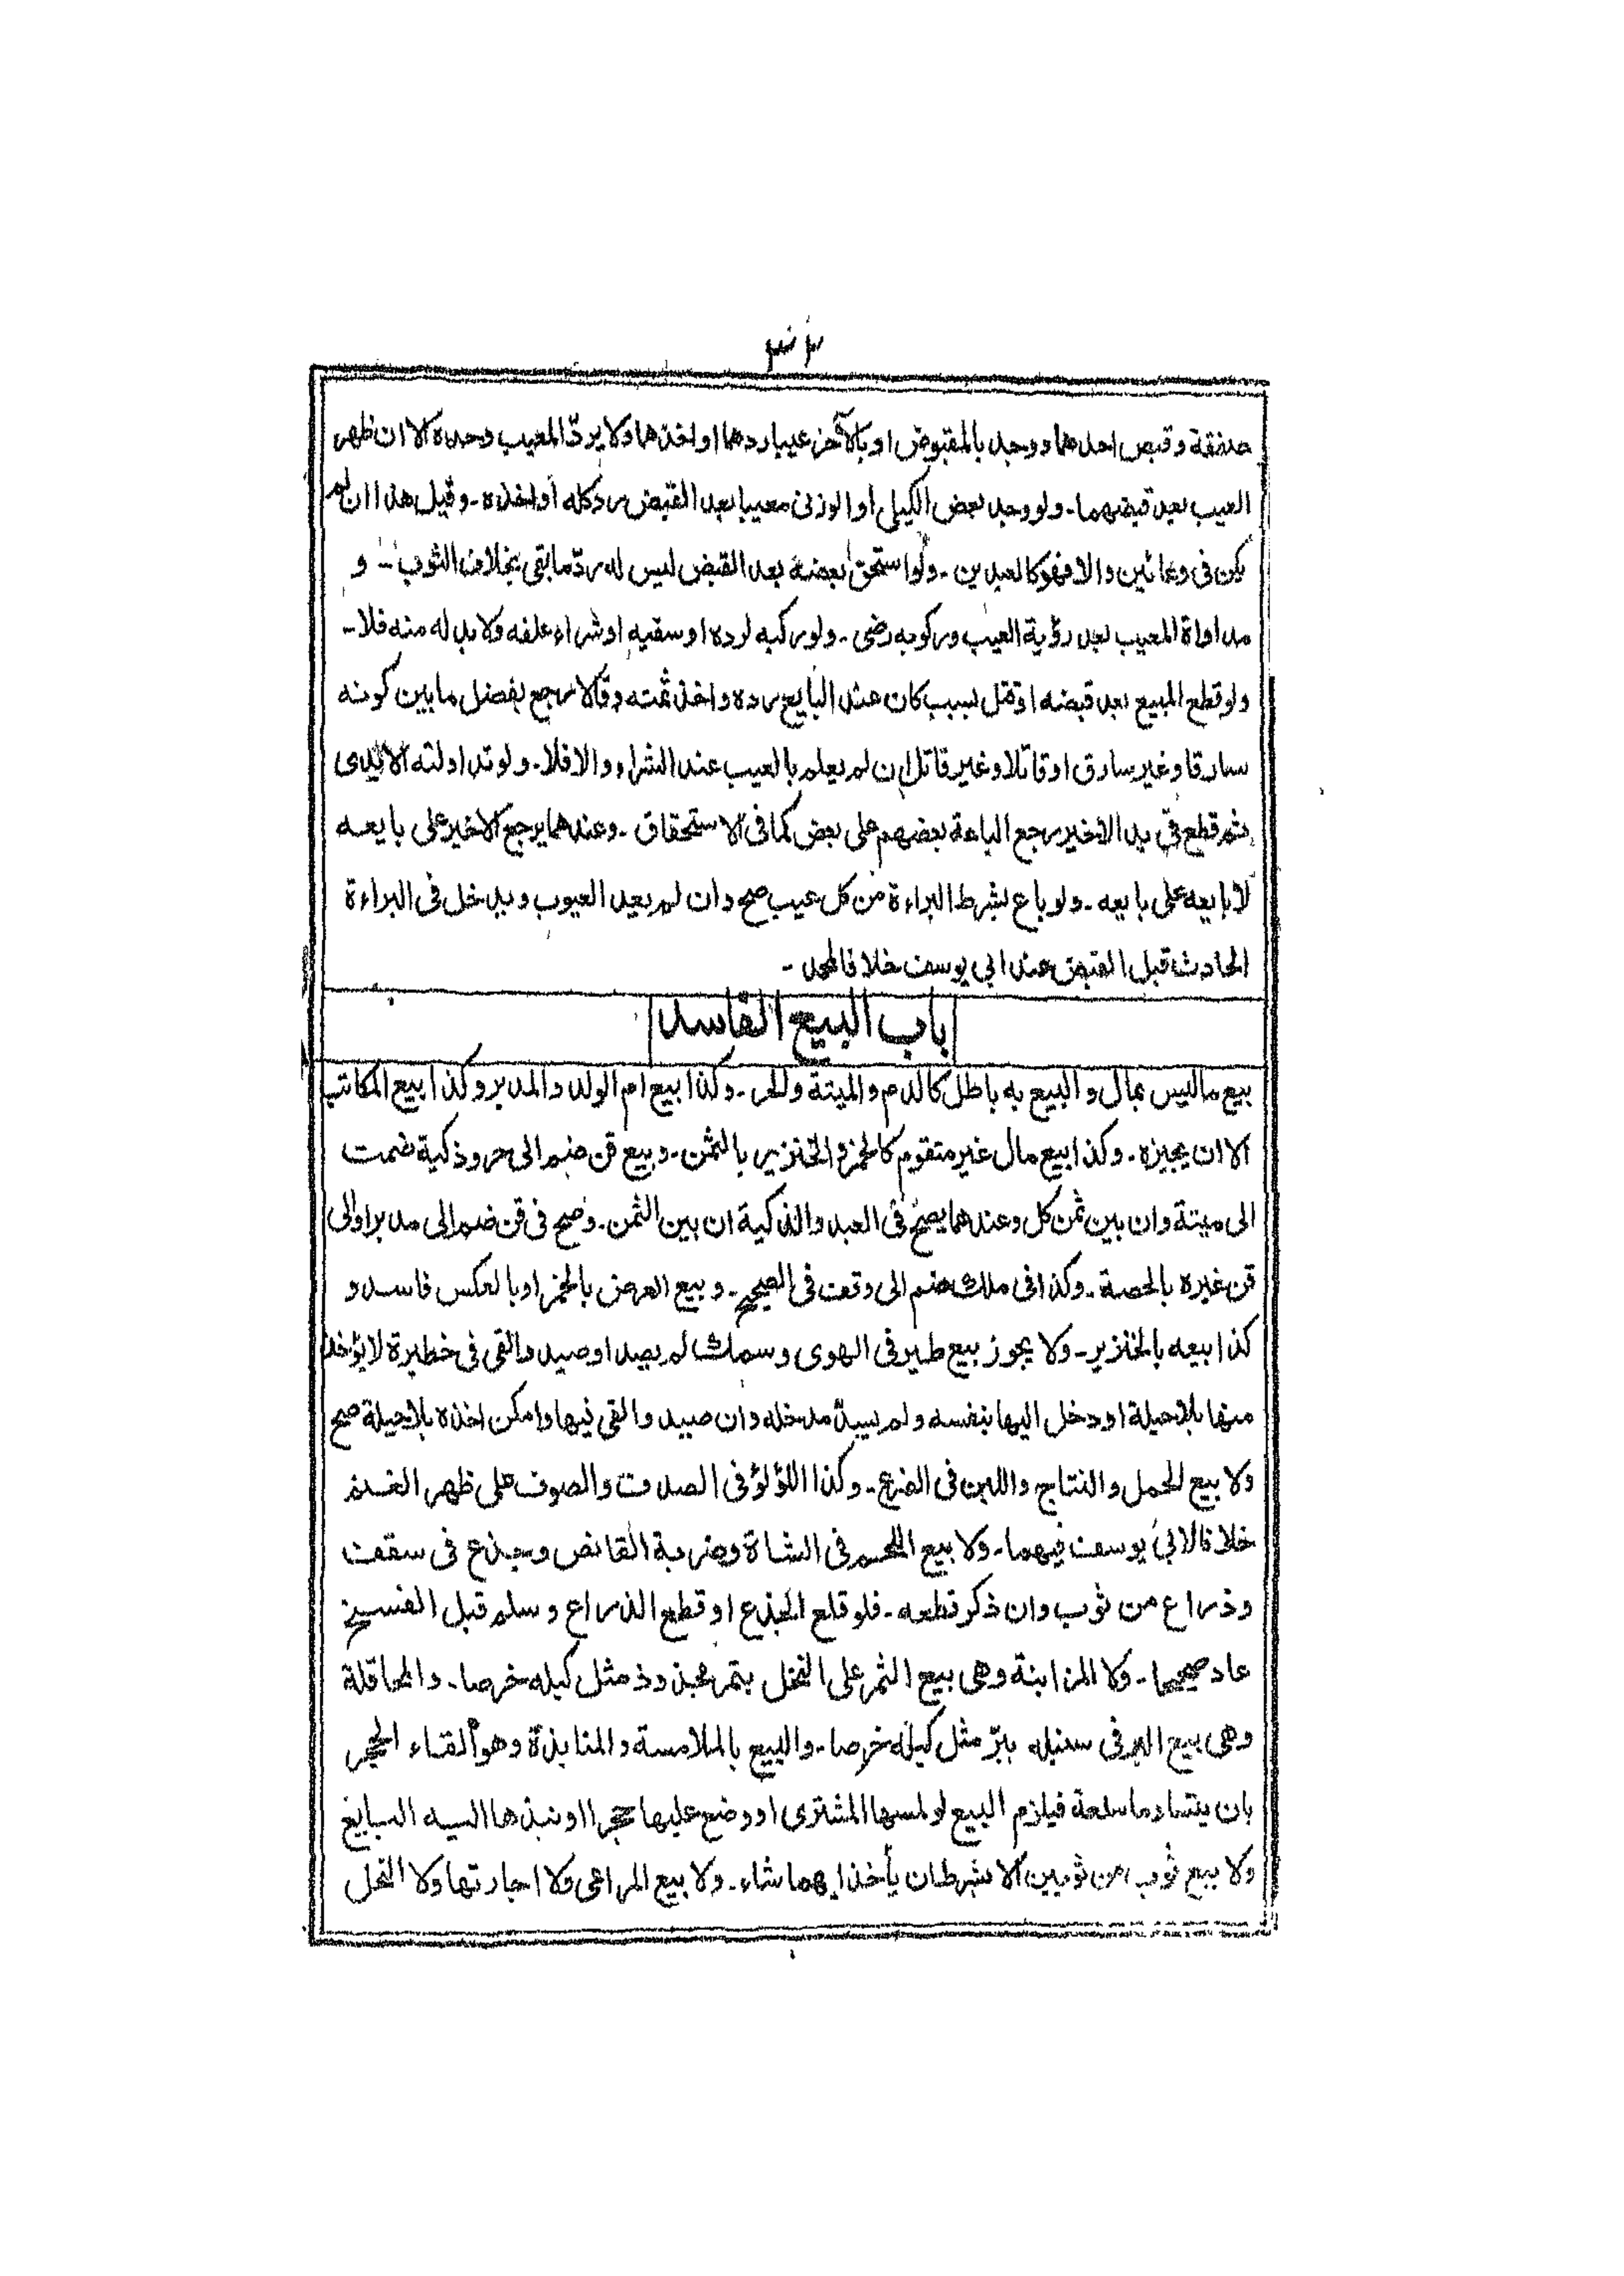 صفقة وقبض احدهما ووجد بالمقبوض او بالآخر عيبا ردهما او اخذهما ولا يردّ المعيب وحده الا ان ظهر
العيب بعد قبضهما۔ ولو وجد بعض الكيلى او الوزنى معيبا بعد القبض رد كله او اخذه۔ وقيل هذا ان لم
يكن فى وعائين والا فهو كالعبدين۔ ولو استحق بعضه بعد القبض ليس له ردّ ما بقى بخلاف الثوب۔ و
مداواة المعيب بعد رؤية العيب وركوبه رضى۔ ولو ركبه لرده او سقيه او شراء علفه ولا بد له منه فلا۔
ولو قطع المبيع بعد قبضه او قتل بسبب كان عند البايع رده واخذ ثمنه وقالا يرجع بفضل ما بين كونه
سارقا وغير سارق او قاتلا وغير قاتل ان لم يعلم بالعيب عند الشراء والا فلا۔ ولو تداولته الايدى
ثم قطع فى يد الاخير رجع الباعة بعضهم على بعض كما فى الاستحقاق۔ وعندهما يرجع الاخير على بايعه
لا بايعه على بايعه۔ ولو باع بشرط البراءة من كل عيب صح وان لم يعد العيوب ويدخل فى البراءة
الحادث قبل القبض عند ابى يوسف خلافا لمحمد۔
باب البيع الفاسد
بيع ما ليس بمال والبيع به باطل كالدم والميتة والحر۔ وكذا بيع ام الولد والمدبر وكذا بيع المكاتب
الا ان يجيزه۔ وكذا بيع مال غير متقوم كالخمر والخنزير بالثمن۔ وبيع قن ضم الى حر وذكية ضمت
الى ميتة وان بين ثمن كل وعندهما يصح فى العبد والذكية ان بين الثمن۔ وصح فى قن ضم الى مدبر او الى
قن غيره بالحصة۔ وكذا فى ملك ضم الى وقف فى الصحيح۔ وبيع العرض بالخمر او بالعكس فاسد و
كذا بيعه بالخنزير۔ ولا يجوز بيع طير فى الهوى وسمك لم يصد او صيد والقى فى خطيرة لا يؤخذ
منها بلا حيلة او دخل اليها بنفسه ولم يسدّ مدخله وان صيد والقى فيها وامكن اخذه بلا حيلة صح
ولا بيع الحمل والنتاج واللبن فى الضرع۔ وكذا اللؤلؤ فى الصدف والصوف على ظهر الغنم
خلافا لابى يوسف فيهما۔ ولا بيع اللحم فى الشاة وضربة القانص وجذع فى سقف
وذراع من ثوب وان ذكر قطعه۔ فلو قلع الجذع او قطع الذراع وسلم قبل الفسخ
عاد صحيحا۔ ولا المزابنة وهى بيع الثمر على النخل بتمر مجذوذ مثل كيله خرصا۔ والمحاقلة
وهى بيع البر فى سنبله ببرّ مثل كيله خرصا۔ والبيع بالملامسة والمنابذة وهو القاء الحجر
بان يتساوما سلعة فيلزم البيع لو لمسها المشترى او وضع عليها حجرا او نبذها اليه البايع
ولا بيع ثوب من ثوبين الا بشرط ان يأخذ ايهما شاء۔ ولا بيع المراعى ولا اجارتها ولا النحل